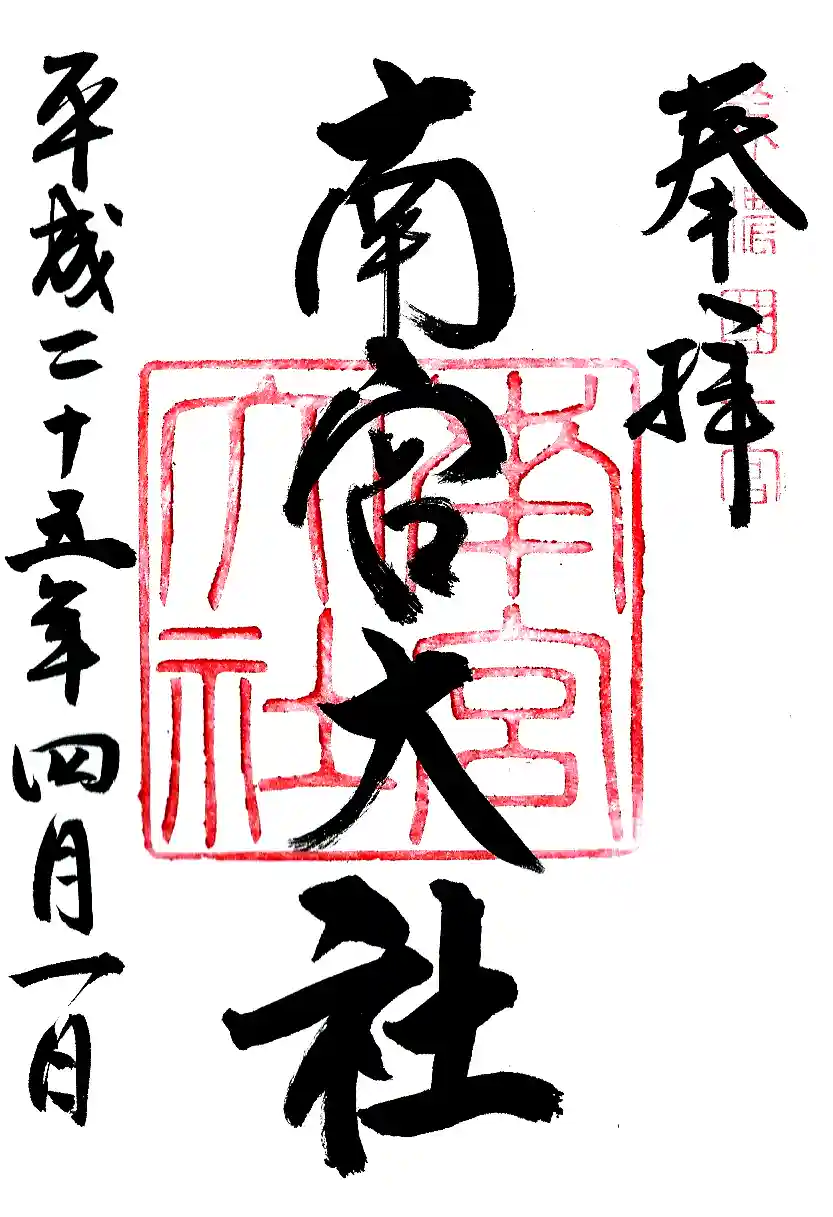 奉拝
美濃国一宮
南宮大社
南宮大社
平成二十五年四月一日